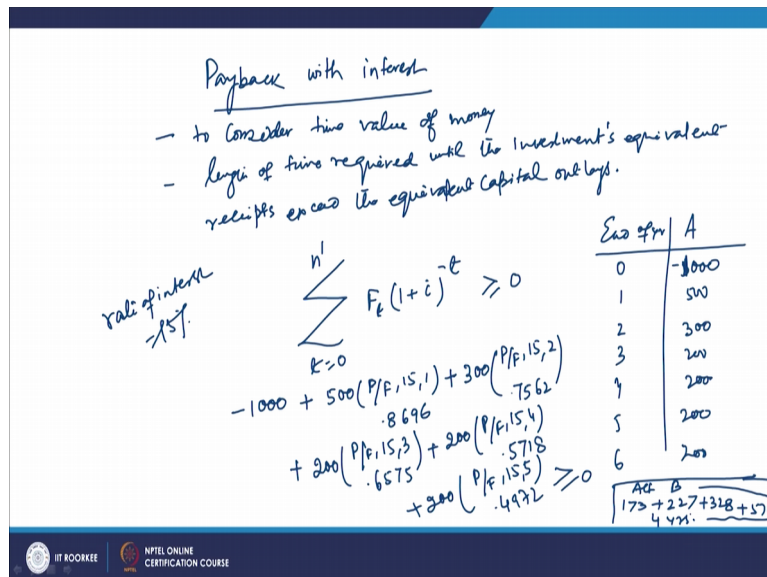 Payback with interest
– to consider time value of money
– length of time required until the Investment's equivalent
receipts exceed the equivalent capital outlays.
rate of interest
=15%
n'
Σ F_t (1+i)^-t ≥ 0
t=0
-1000 + 500(P/F,15,1) + 300(P/F,15,2)
.8696 .7562
+ 200(P/F,15,3) + 200(P/F,15,4)
.6575 .5718
+200(P/F,15,5) ≥ 0
.4972
End of yr A
0 -1000
1 500
2 300
3 200
4 200
5 200
6 200
Alt B
173+227+328+57
4 yrs.
IIT ROORKEE
NPTEL ONLINE
CERTIFICATION COURSE